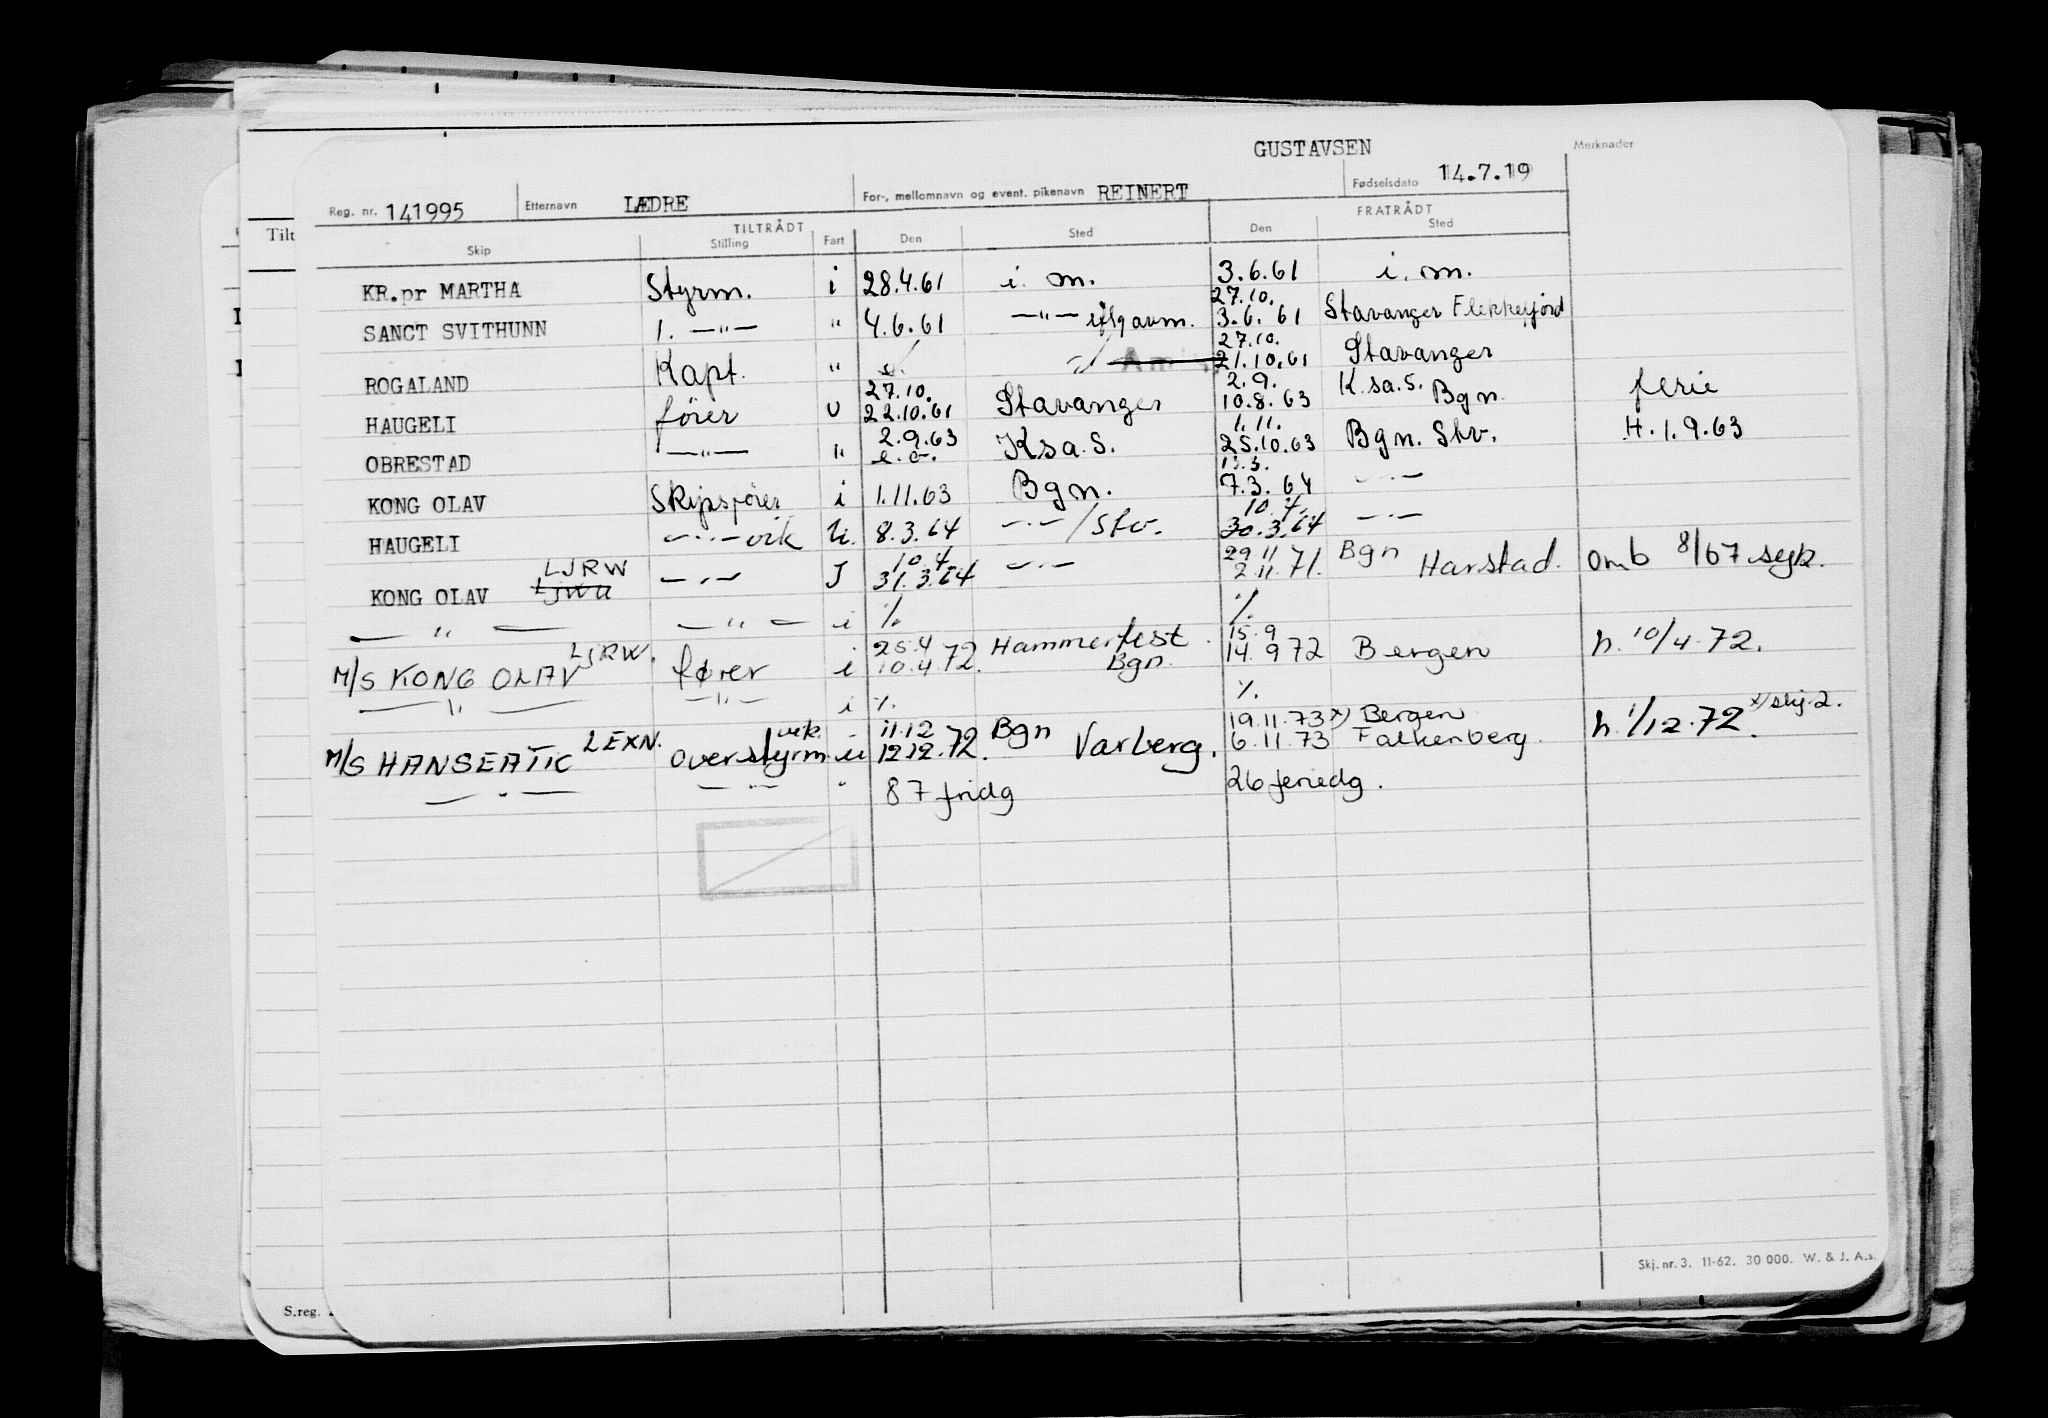 GUSTAVSEN Merknader
Reg. nr. 141995 Etternavn LÆDRE For-, mellomnavn og event. pikenavn REINERT Fødselsdato 14.7.19
TILTRÅDT FRATRÅDT
Skip Stilling Fart Den Sted Den Sted
KR.pr MARTHA Styrm. i 28.4.61 i. m. 3.6.61 i. m.
27.10.
SANCT SVITHUNN 1. —"— " 4.6.61 —"— 3.6.61 Stavanger Flekkefjord
27.10.
ROGALAND Kapt. " 21.10.61 Stavanger
27.10. 2.9.
HAUGELI fører U 22.10.61 Stavanger 10.8.63 K.sa.S. Bgn. ferie
2.9.63 1.11.
OBRESTAD —"— " e.o. Ksa.S. 25.10.63 Bgn. Stv. H.1.9.63
KONG OLAV Skipsfører i 1.11.63 Bgn. 7.3.64 —"—
10.4.
HAUGELI —"— vik U. 8.3.64 —"— / Stv. 30.3.64 —"—
LJRW 10.4. 29 11
KONG OLAV —"— J 31.3.64 —"— 2.11.71. Bgn Harstad. Omb 8/67 syk.
— " — — " — i %. %.
25.4 Hammerfest. 15.9
M/S KONG OLAV LJRW. fører i 10.4.72. Bgn. 14.9 72 Bergen h. 10/4-72.
— " — —"— i %. %.
vik. 11.12 Bgn 19.11.73 x) Bergen x) skj. 2.
M/S HANSEATIC LEXN. Overstyrm. u 12.12.72. Varberg. 6.11.73 Falkenberg. h. 1/12-72.
— " — — " — " 87 fridg 26 feriedg.
Skj. nr. 3. 11-62. 30 000. W. & J. A.s.
S.reg.
Tilt